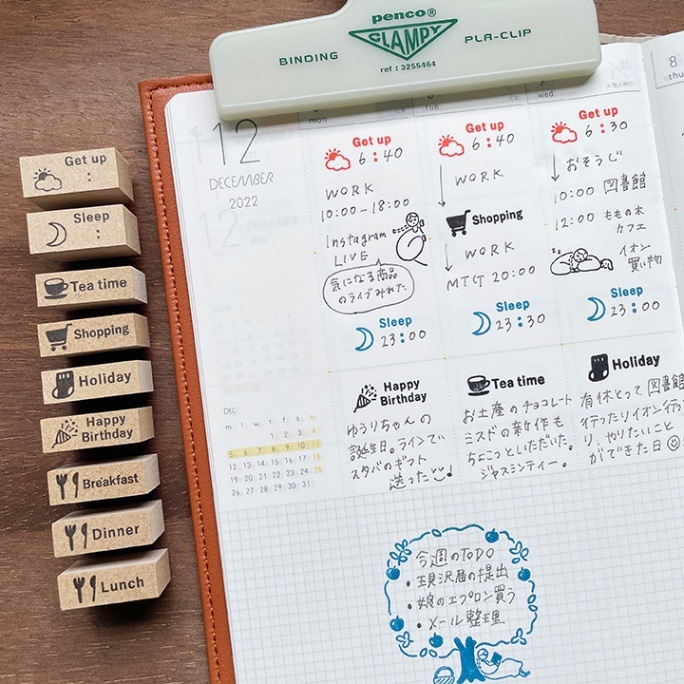 penco®
CLAMPY
BINDING
PLA-CLIP
ref : 3255464
Get up
:
Sleep
:
Tea time
Shopping
Holiday
Happy
Birthday
Breakfast
Dinner
Lunch
12
DECEMBER
2022
mon
Get up
6:40
WORK
10:00-18:00
Instagram
LIVE
気になる商品
のライブみれた
Sleep
23:00
tue
Get up
6:40
WORK
Shopping
WORK
MTG 20:00
Sleep
23:30
wed
Get up
6:30
おそうじ
10:00 図書館
12:00 ももの木
カフェ
イオン
買い物
Sleep
23:00
8
thu
DEC.
m. t. w. t. f. s. s.
1 2 3 4
5 6 7 8 9 10 11
12 13 14 15 16 17 18
19 20 21 22 23 24 25
26 27 28 29 30 31
Happy
Birthday
ゆうりちゃんの
誕生日。ラインで
スタバのギフト
送った
Tea time
お土産のチョコレート
ミスドの新作も
ちょこっといただいた。
ジャスミンティー。
Holiday
有休とって図書館
行ったりイオン行った
り、やりたいこと
ができた日
今週のTODO
・現沢届の提出
・娘のエプロン買う
・メール整理